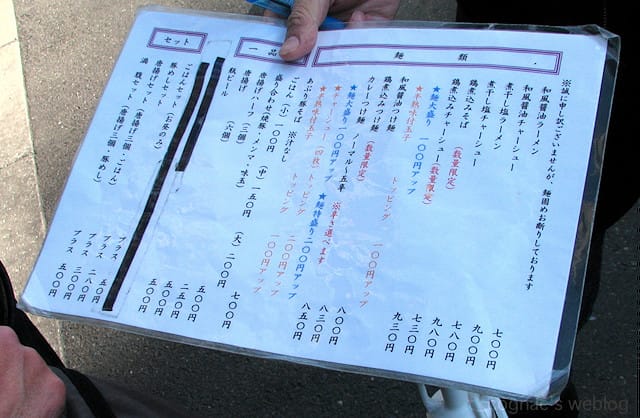 麺類
※誠に申し訳ございませんが、麺固めお断りしております
和風醤油ラーメン 七〇〇円
和風醤油チャーシュー 九〇〇円
煮干し塩ラーメン 七八〇円
煮干し塩チャーシュー 九八〇円
鶏煮込みそば (数量限定) 七三〇円
鶏煮込みチャーシュー (数量限定) 九三〇円
★麺大盛り 一〇〇円アップ
★半熟味付玉子 トッピング 一〇〇円アップ
和風醤油つけ麺 八〇〇円
カレーつけ麺 (数量限定) ノーマル～五辛 ※辛さ選べます 八三〇円
あぶり豚そば ※汁なし 八五〇円
★麺大盛り 一〇〇円アップ ★麺特盛り 二〇〇円アップ
★チャーシュー (四枚) トッピング 二〇〇円アップ
★半熟味付玉子 トッピング 一〇〇円アップ
一品
ごはん (小) 一〇〇円 (中) 一五〇円 (大) 二〇〇円
盛り合わせ (焼豚・メンマ・味玉) 七〇〇円
唐揚げハーフ (三個)
唐揚げ (六個) 五〇〇円
瓶ビール 五〇〇円
セット
ごはんセット (お昼のみ) プラス 五〇円
豚めしセット プラス 二八〇円
唐揚げセット (唐揚げ三個・ごはん) プラス 三〇〇円
満腹セット (唐揚げ三個・豚めし) プラス 五〇〇円
ognac's weblog